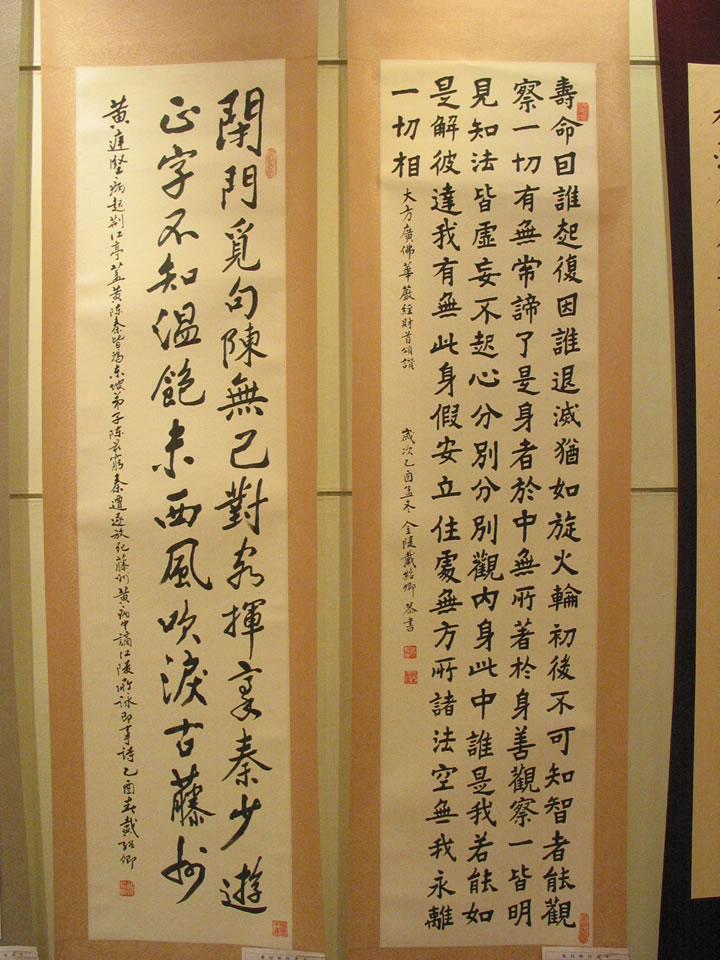 壽命囙誰起復因誰退滅猶如旋火輪初後不可知智者能觀
察一切有無常諦了是身者於中無所著於身善觀察一皆明
見知法皆虛妄不起心分別分別觀內身此中誰是我若能如
是解彼達我有無此身假安立住處無方所諸法空無我永離
一切相
大方廣佛華嚴經財首頌讚
歲次乙酉孟冬金陵戴紹卿恭書
閉門覓句陳無己對客揮毫秦少遊
正字不知溫飽未西風吹淚古藤州
黃庭堅病起荊江亭蓋黃陈秦皆為东坡弟子陈最窮秦遭逐放死藤州黃病中謫江陵所詠即事詩乙酉春戴紹卿